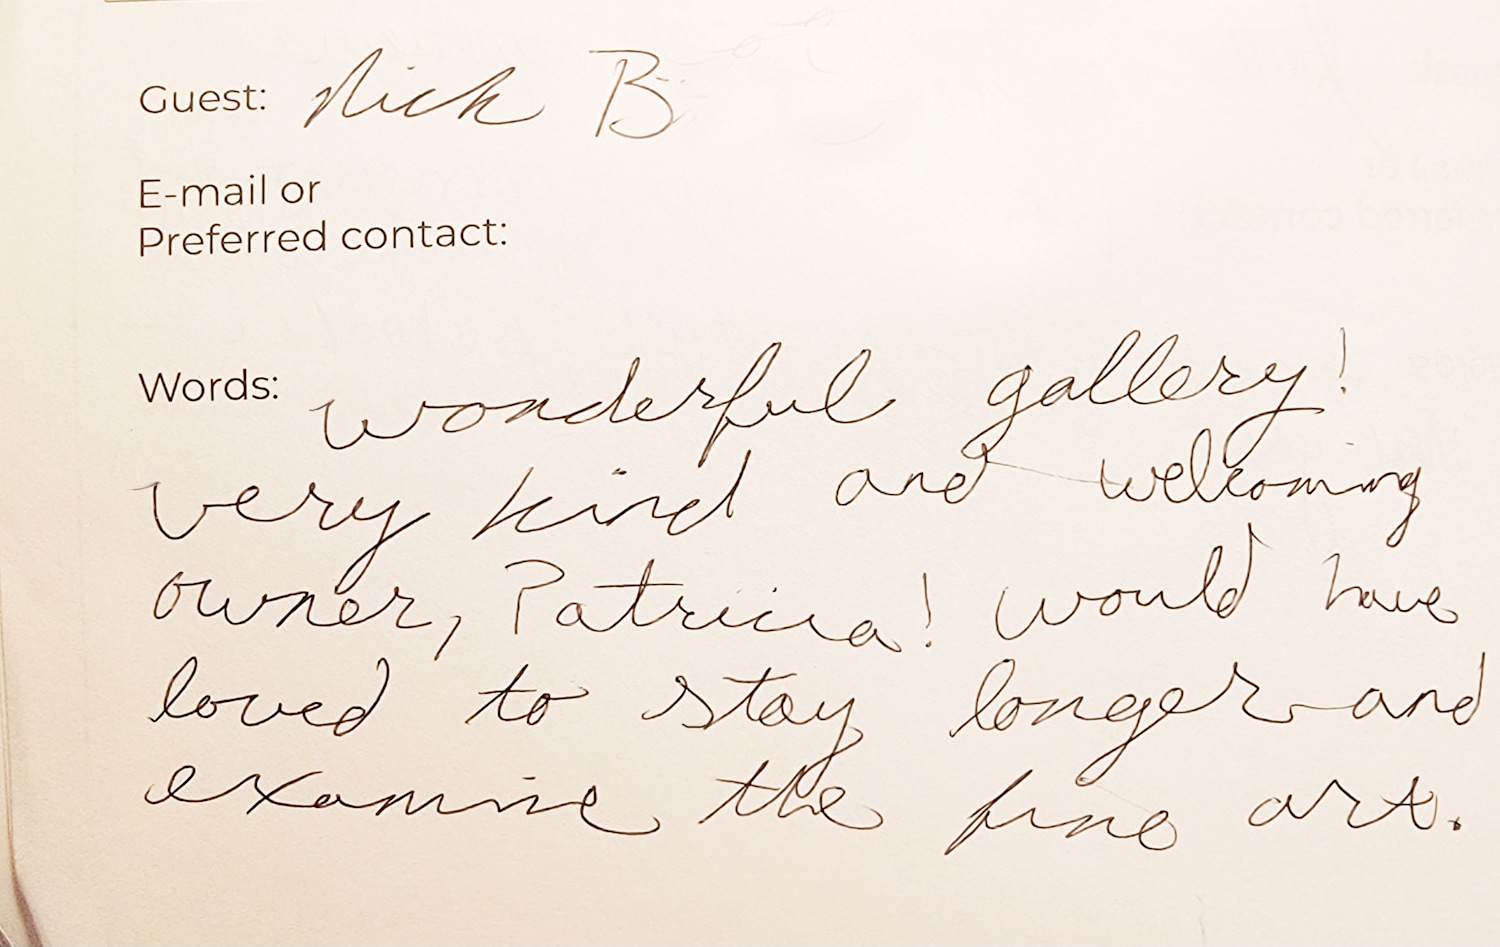 Guest: Nick B
E-mail or
Preferred contact:
Words: wonderful gallery!
very kind and welcoming
owner, Patricia! would have
loved to stay longer and
examine the fine art.